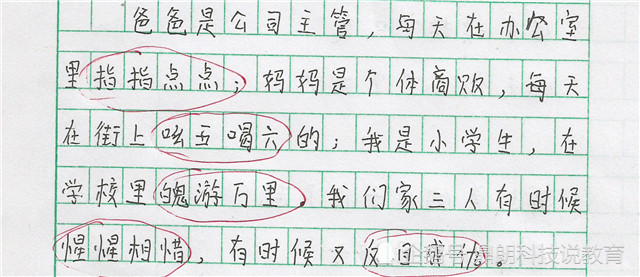 爸爸是公司主管，每天在办公室
里指指点点；妈妈是个体商贩，每天
在街上吆五喝六的；我是小学生，在
学校里魄游万里。我们家三人有时候
惺惺相惜，有时候又反目成仇。
朗科技说教育